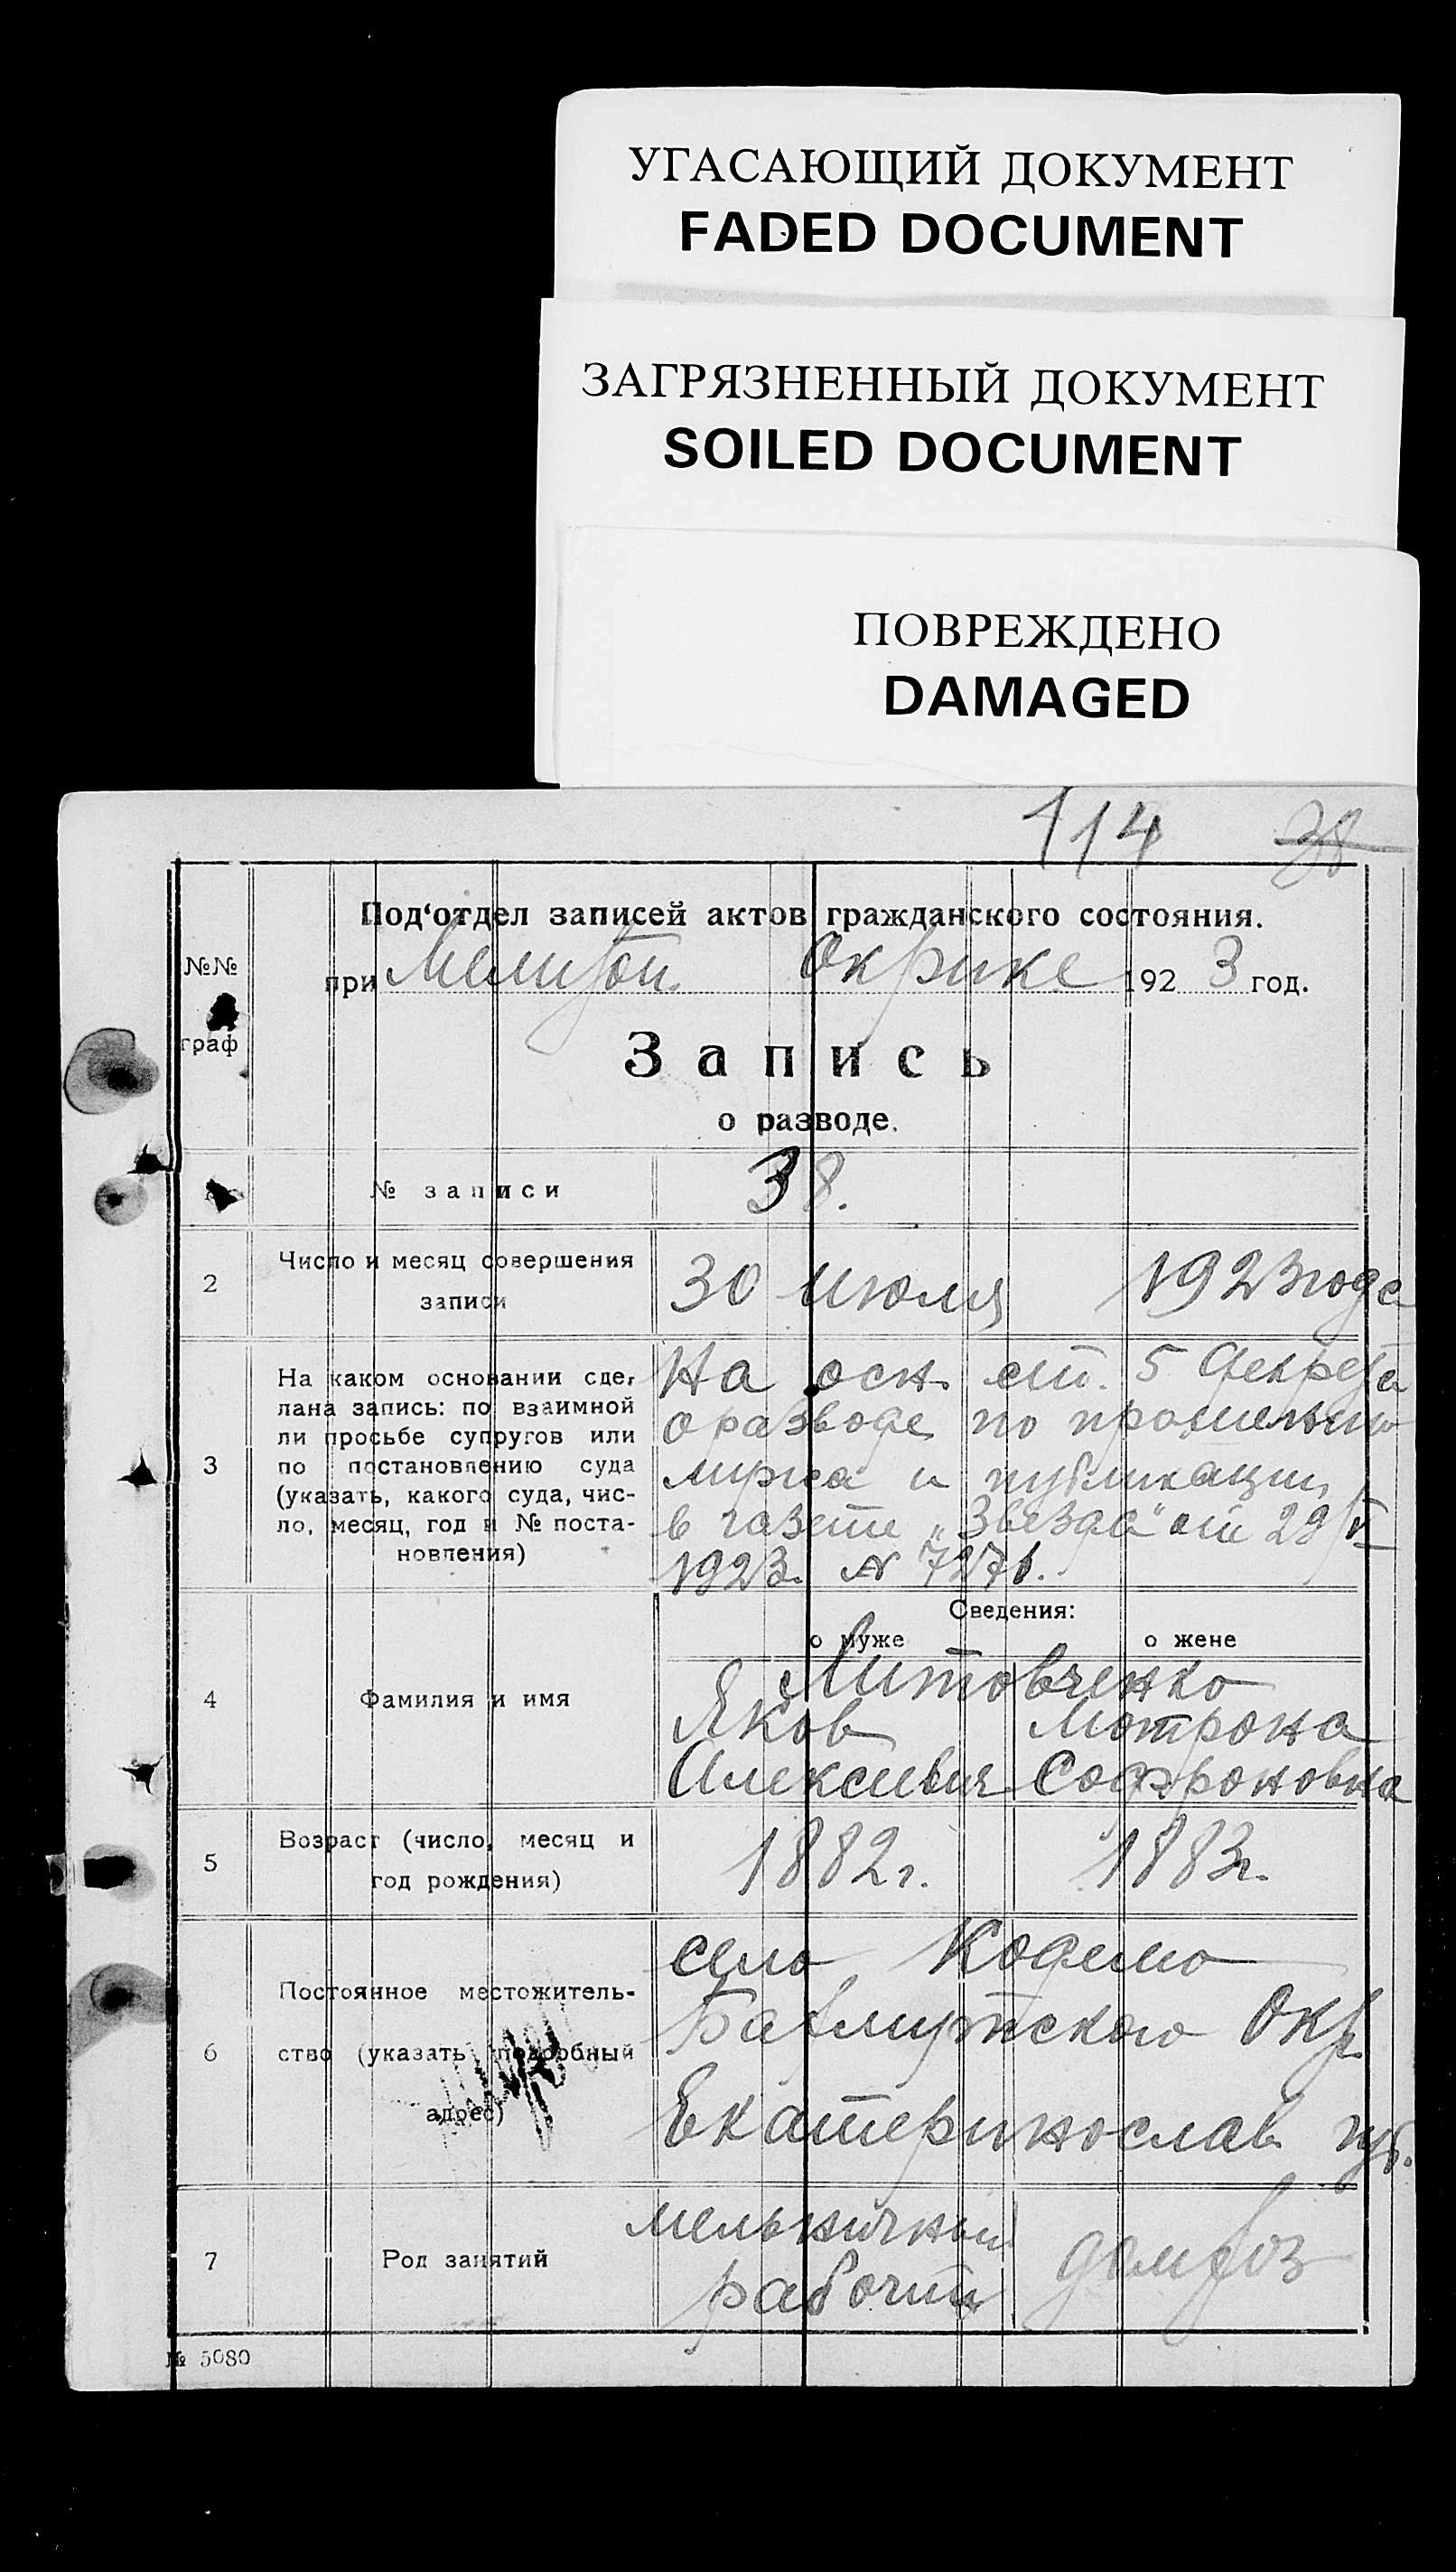 УГАСАЮЩИЙ ДОКУМЕНТ
FADED DOCUMENT
ЗАГРЯЗНЕННЫЙ ДОКУМЕНТ
SOILED DOCUMENT
ПОВРЕЖДЕНО
DAMAGED
114 38
Под‘отдел записей актов гражданского состояния.
№№
граф
при Мелитоп. Окрике 1923 год.
Запись
о разводе.
№ записи 38.
2 Число и месяц совершения записи 30 июля 1923 года
3 На каком основании сде-
лана запись: по взаимной
ли просьбе супругов или
по постановлению суда
(указать, какого суда, чис-
ло, месяц, год и № поста-
новления)
На осн. ст. 5 Декрета
о разводе по прошению
мужа и публикации
в газете „Звезда“ от 29/VI
1923.
Сведения:
о муже о жене
4 Фамилия и имя
Литовченко
Яков Мотрона
Алексеевич Софроновна
5 Возраст (число, месяц и
год рождения)
1882г. 1883г.
6 Постоянное местожитель-
ство (указать подробный
адрес)
село Кодемо
Бахмутского Окр.
Екатеринослав губ.
7 Род занятий
мельничный
рабочий
домхоз
№ 5080